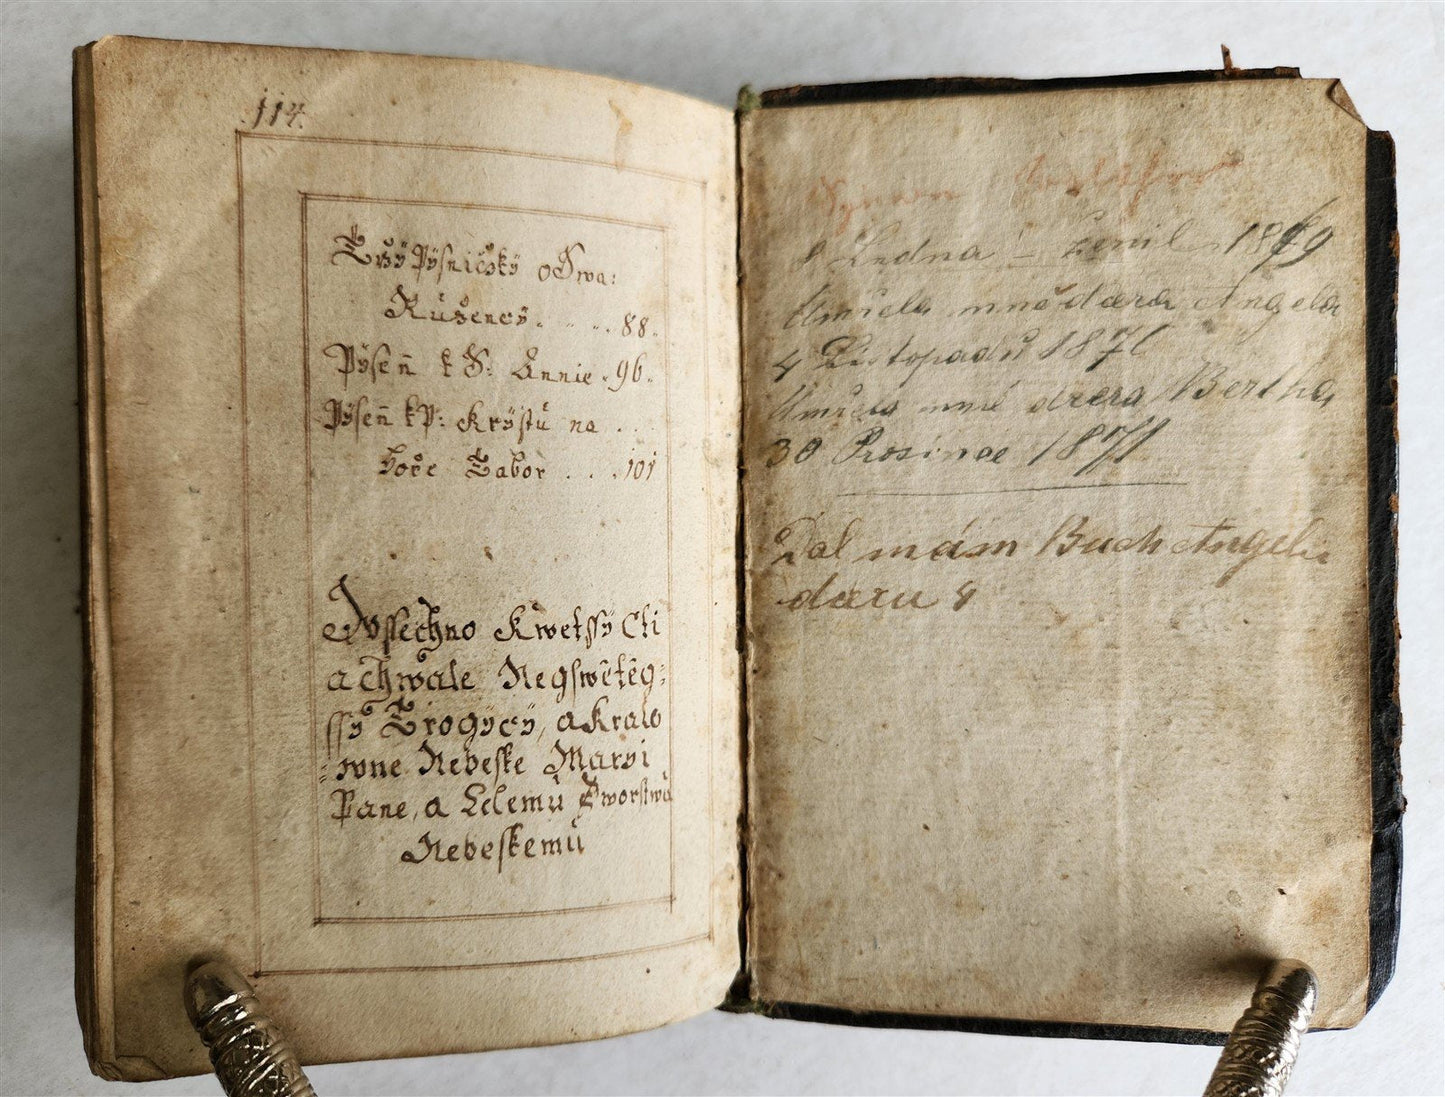 114.
Trzÿ Pÿsničzkÿ o Swa:
Růžencÿ. . . . 88.
Pÿseñ k S: Annie . 96.
Pÿseñ k P: Krÿstu na . . .
hoře Tabor . . . . 101
Wssechno kwetssÿ Cti
a chwale Negswětěg:
ssÿ Trogÿcÿ, a Kralo
:wne Nebeske Maryi
Pane, a Celemů Dworstwů
Nebeskemů
8 Ledna 18 9
Umřela mně dcera Angela
4 Listopadu 1871
Umřela mně dcera Bertha
30 Prosince 1871
Dal mám Buch Angelu
dceru 8